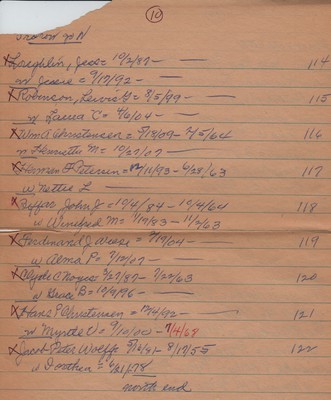 10
X Loughlin, Jess = 10/2/87 - — 114
w Jessie = 9/17/92 - —
X Robinson, Lewis G = 8/5/99 - — 115
w Laura C = 4/6/04 - —
X Wm A Christensen = 7/19/09 - 2/5/64 116
w Henrietta M = 10/27/07 - —
X Herman F Petersen = 12/11/93 - 6/28/63 117
w Nettie L —
X John J = 10/4/84 - 10/4/64 118
w Winifred M = 1/19/93 - 11/2/63
X Ferdinand J = 2/19/04 - — 119
w Alma P = 7/10/07 - —
X Clyde C Noyes = 2/27/87 - 2/22/63 120
w Grace B = 10/9/96 - —
X Hans P Christensen = 12/4/92 - — 121
w Myrtle O = 9/10/00 - 7/4/68
X Jacob Peter Wolff = 5/14/81 - 8/17/55 122
w Dorothea = 6/21/78
north end